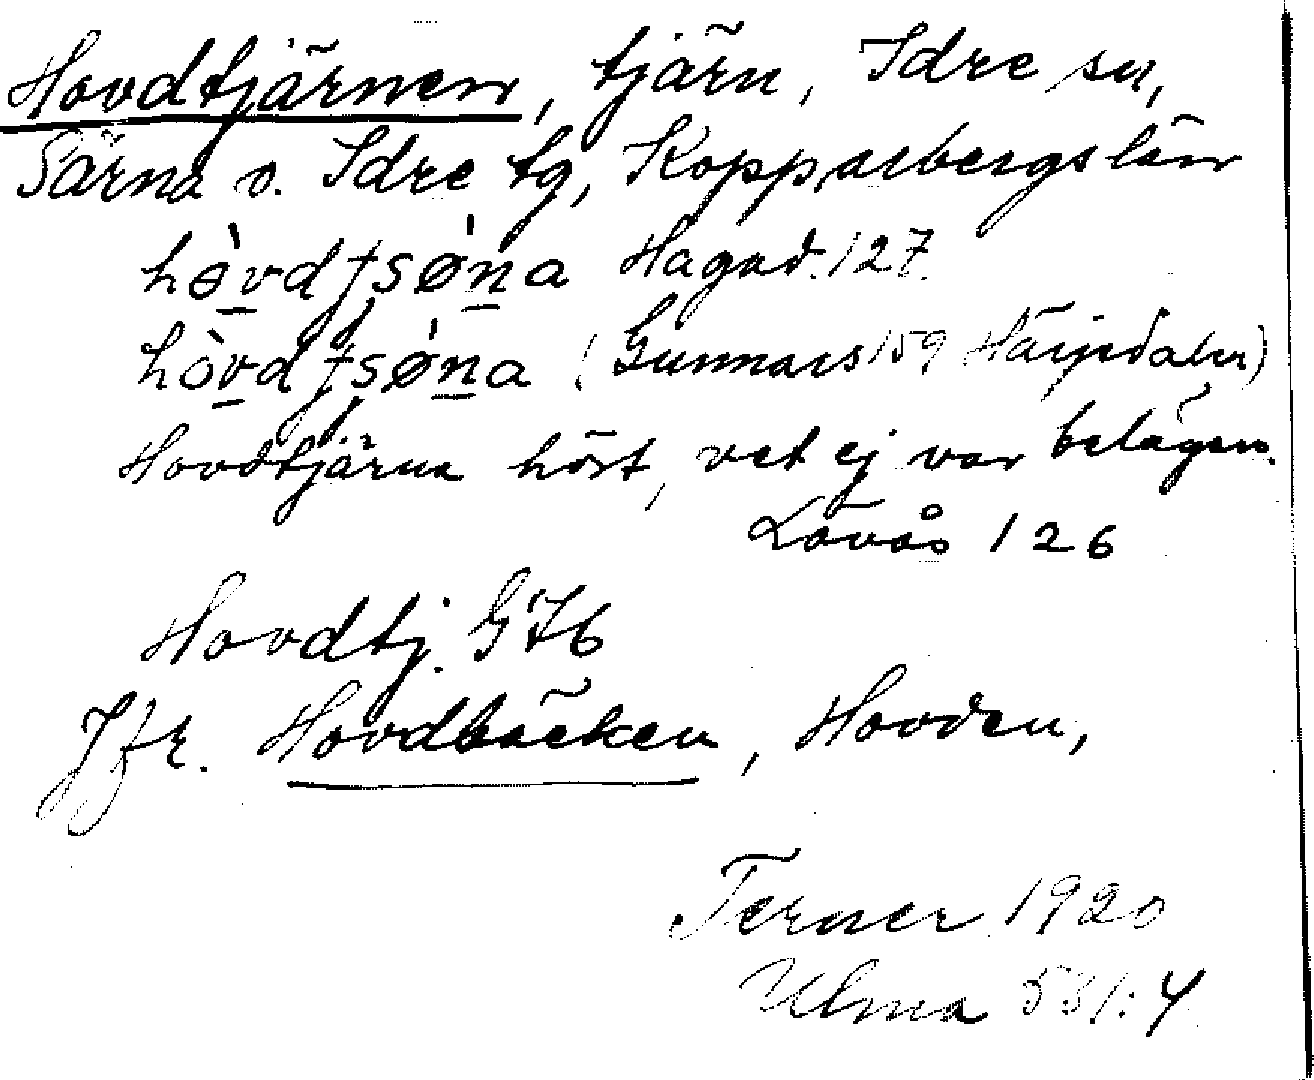 Hovdtjärnen, tjärn, Idre sn,
Särna o. Idre tg, Kopparbergs län
hòvdțșø̀na Hagad. 127.
hòvdțșø̀na (Gunnars 159 Härjedalen)
Hovdtjärna hört, vet ej var belägen.
Lövås 126
Hovdtj. G76
Jfr. Hovdbäcken, Hovden,
Terner 1920
Ulma 531:4